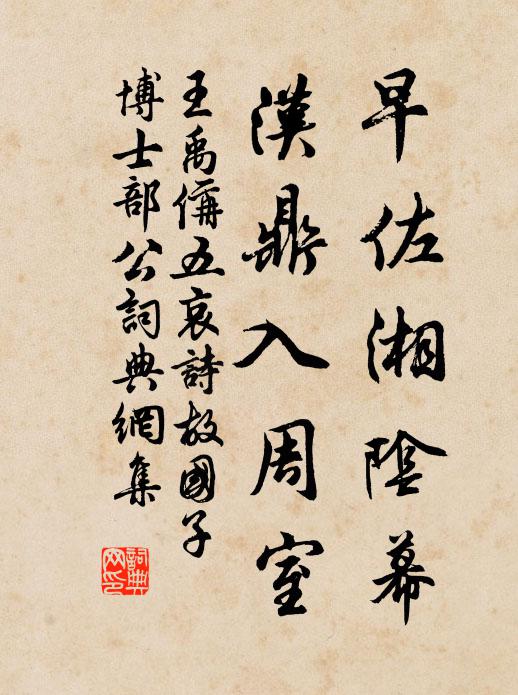 早佐湘陰幕
漢鼎入周室
王禹偁五哀詩故國子
博士部公詞典網集
詞典网印